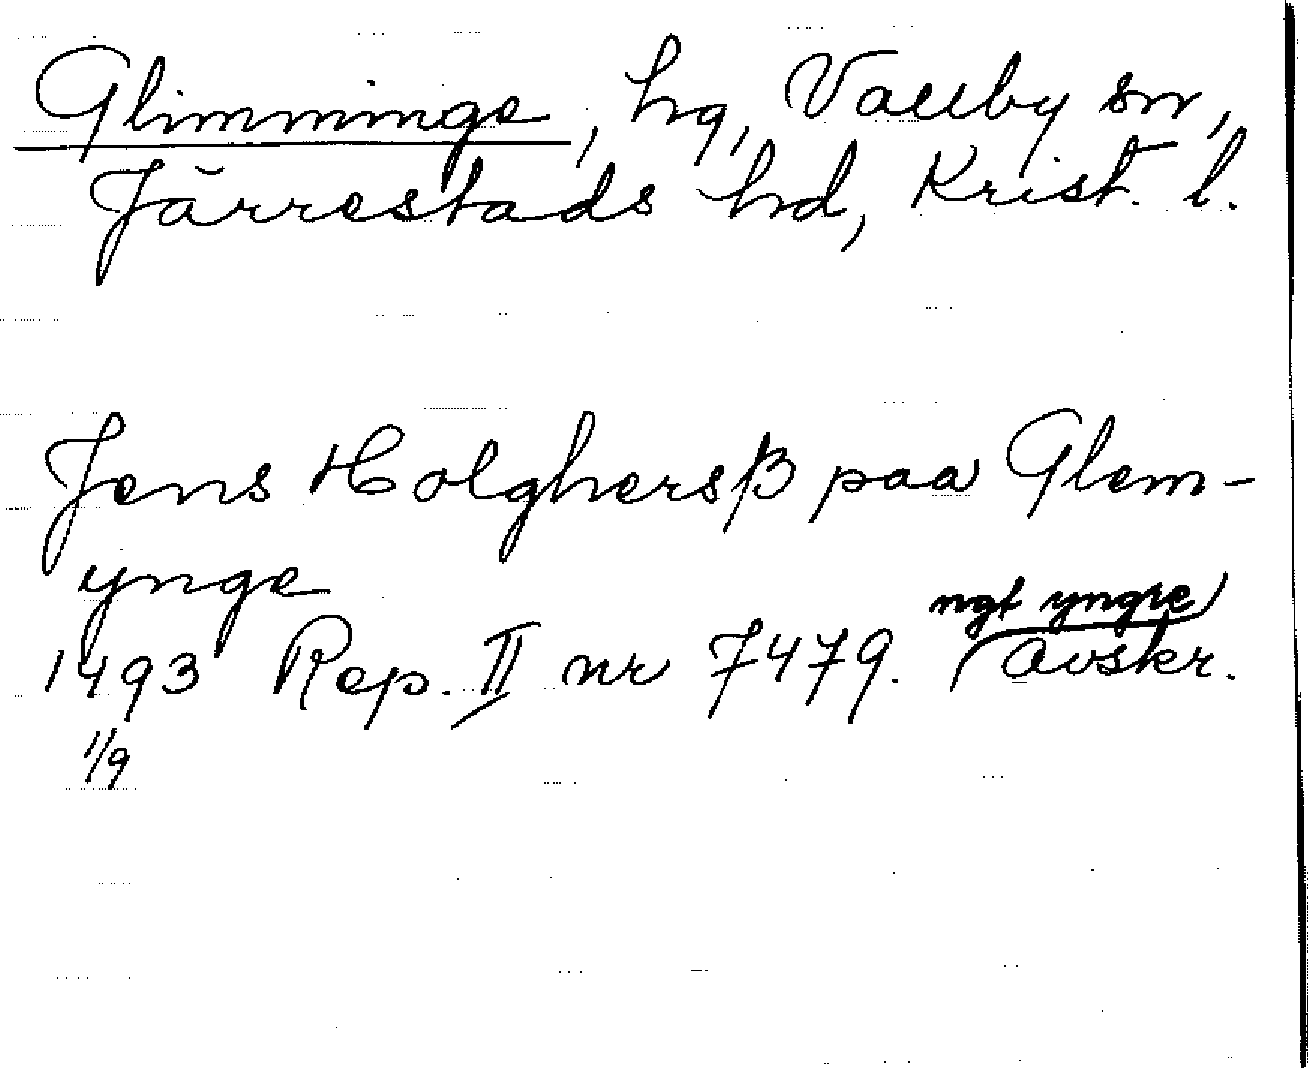 Glimminge, hg, Vallby sn,
Järrestads hd, Krist. l.
Jens Holghersß paa Glem-
ynge
1493 Rep. II nr 7479. ngt yngre avskr.
1/9